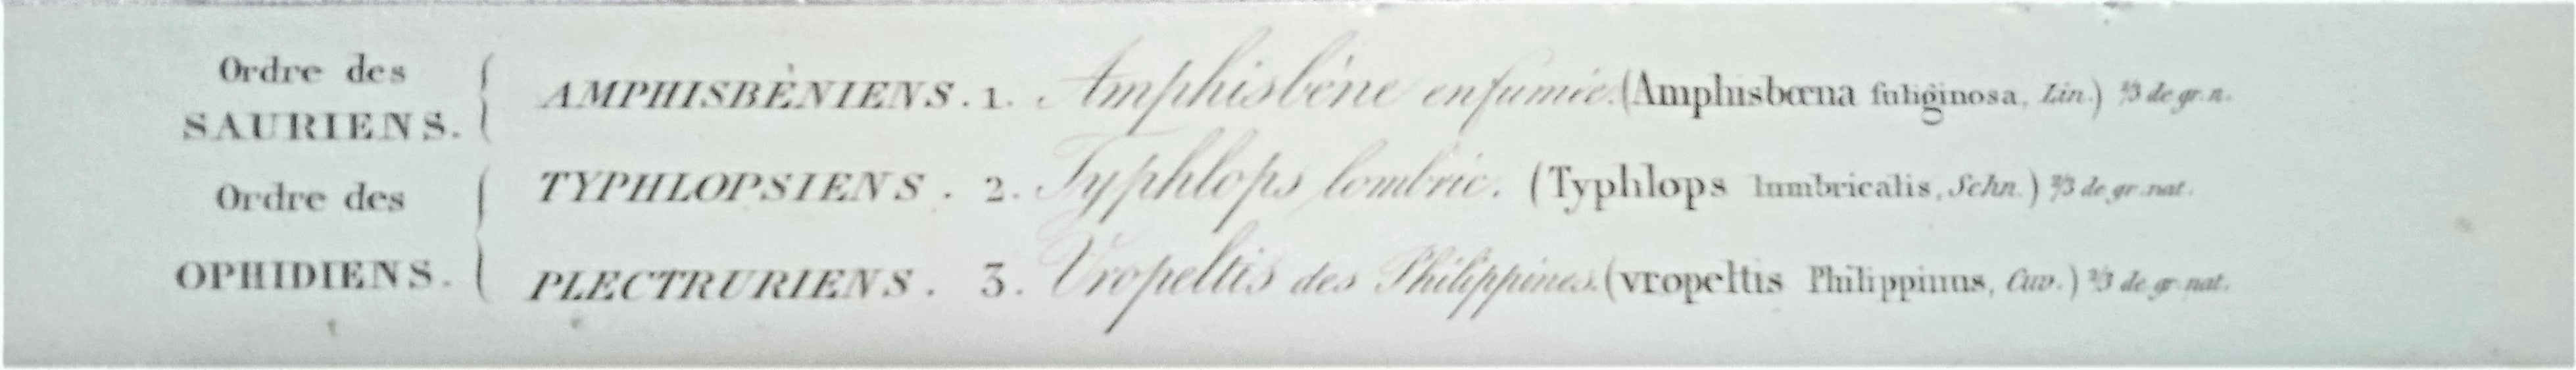 Ordre des
SAURIENS.
AMPHISBÈNIENS. 1. Amphisbène enfumée. (Amphisbœna fuliginosa, Lin.) ⅔ de gr. n.
Ordre des
OPHIDIENS.
TYPHLOPSIENS. 2. Typhlops lombric. (Typhlops lumbricalis, Schn.) ⅔ de gr. nat.
PLECTRURIENS. 3. Vropeltis des Philippines. (vropeltis Philippinus, Cuv.) ⅔ de gr. nat.